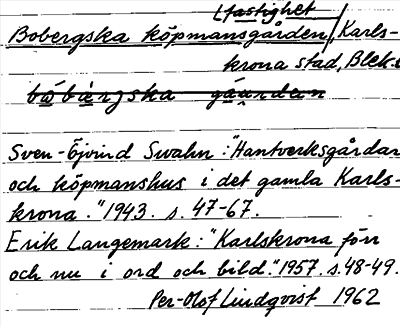 (fastighet
Bobergska köpmansgården, Karls-
krona stad, Blek.
Sven-Öjvind Swahn: "Hantverksgårdar
och köpmanshus i det gamla Karls-
krona." 1943. s. 47-67.
Erik Langemark: "Karlskrona förr
och nu i ord och bild." 1957. s. 48-49.
Per-Olof Lindqvist 1962